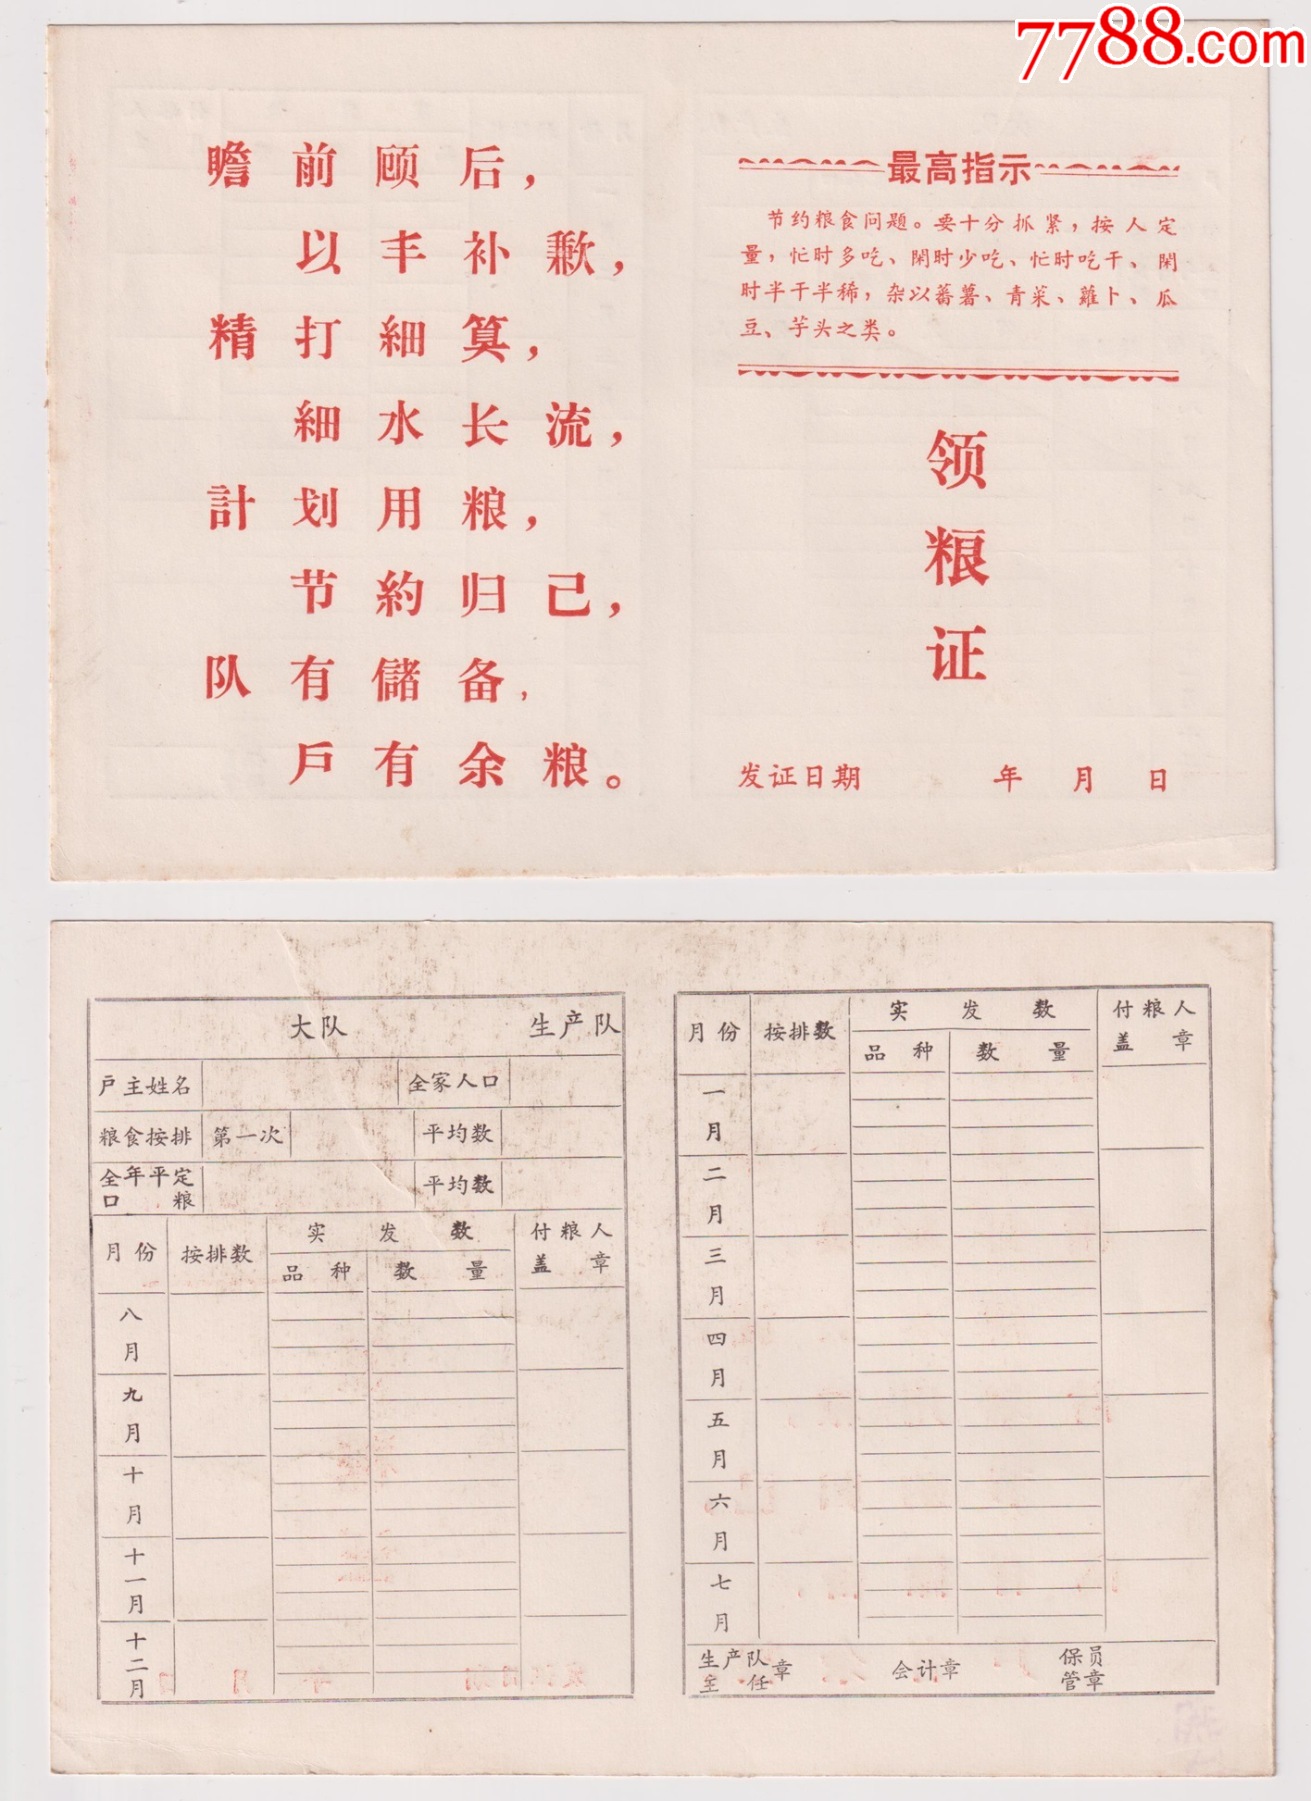 7788.com
瞻前顾后，
以丰补歉，
精打細算，
細水长流，
計划用粮，
节約归己，
队有儲备，
戶有余粮。
最高指示
节约粮食问题。要十分抓紧，按人定
量，忙时多吃、闲时少吃、忙时吃干、闲
时半干半稀，杂以蕃薯、青菜、蘿卜、瓜
豆、芋头之类。
领
粮
证
发证日期 年 月 日
大队 生产队
戶主姓名 全家人口
粮食按排 第一次 平均数
全年平定
口粮 平均数
月份 按排数 实发数 付粮人
盖章
品种 数量
八月
九月
十月
十一月
十二月
月份 按排数 实发数 付粮人
盖章
品种 数量
一月
二月
三月
四月
五月
六月
七月
生产队
主任 章 会计章 保员
管章